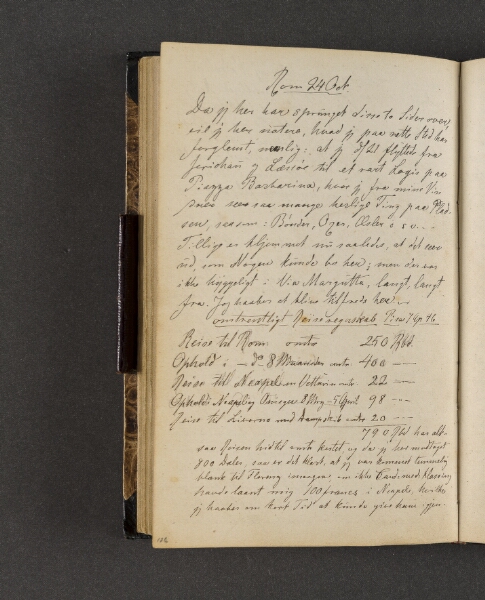 Rom 24 Oct
Da jeg her har sprunget disse to Sider over,
vil jeg her notere, hvad jeg paa rette Sted har
forglemt, nemlig: at jeg flyttede fra
Jerichau og Læssøe til et rart Logis paa
Piazza Barbarina, hvor jeg fra mine Vin-
duer saa mange herlige Ting paa Plad-
sen, saasom: Bønder, Oxer, Æsler o s v.
Tillige er Hjemmet nu saaledes, at det
som Morgen kunde bo her; men der var
ikke hyggeligt i Via Margutta, langt, langt
fra. Jeg haaber at blive tilfreds her
omtrentligt Reiseregnskab
Reise til Rom omtr 250 Rbd.
Ophold i 8 Maaneder omtr 400 —
Reise til Neapel en Vetturin omtr 22 —
Ophold i Neapel og 98 —
Reise til Livorno med Dampskib omtr 20 —
790 Rbd har alt-
saa Reisen hidtil omtr kostet, og da jeg har modtaget
800 Daler, saa er det klart, at jeg var kommet temmelig
blank til Florenz imorgen, om ikke
havde laant mig 100 francs i Neapel, hvilke
jeg haaber om kort Tid at kunde give ham igjen.